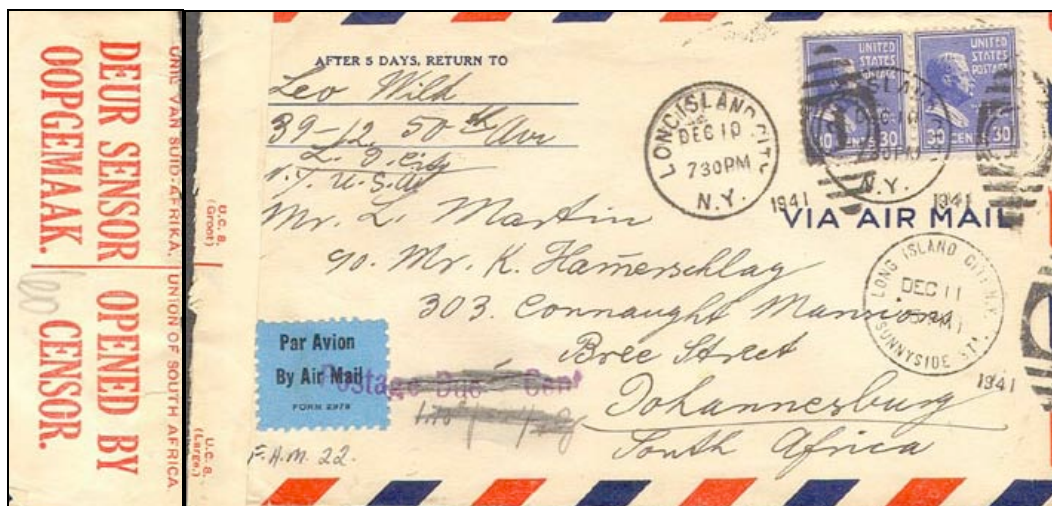 UNIE VAN SUID-AFRIKA. UNION OF SOUTH AFRICA
DEUR SENSOR OPENED BY
OOPGEMAAK. CENSOR.
U.C. 8.
(Groot)
U.C. 8.
(Large.)
AFTER 5 DAYS, RETURN TO
Leo Wild
39-12 50th Ave
L. I. City
N.Y. U.S.A.
LONG ISLAND CITY
DEC 10
730PM
N.Y.
1941
UNITED
STATES
POSTAGE
30 CENTS 30
UNITED
STATES
POSTAGE
30 CENTS 30
1941
VIA AIR MAIL
Mr. L. Martin
c/o. Mr. K. Hamerschlag
303. Connaught Mansions
Bree Street
Johannesburg
South Africa
LONG ISLAND CITY N.Y.
DEC 11
SUNNYSIDE STA.
1941
Par Avion
By Air Mail
FORM 2978
Postage Due Cen
F.A.M. 22.